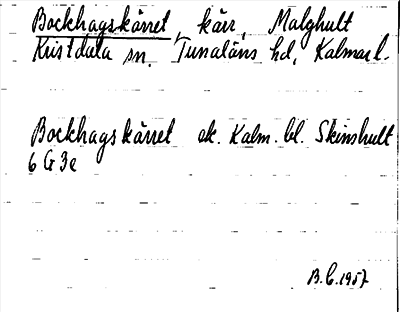 Bockhagskärret, kärr, Malghult
Kristdala sn. Tunaläns hd, Kalmar l.
Bockhagskärret ek. Kalm. bl. Skinshult
6 G 3e
B.C. 1957